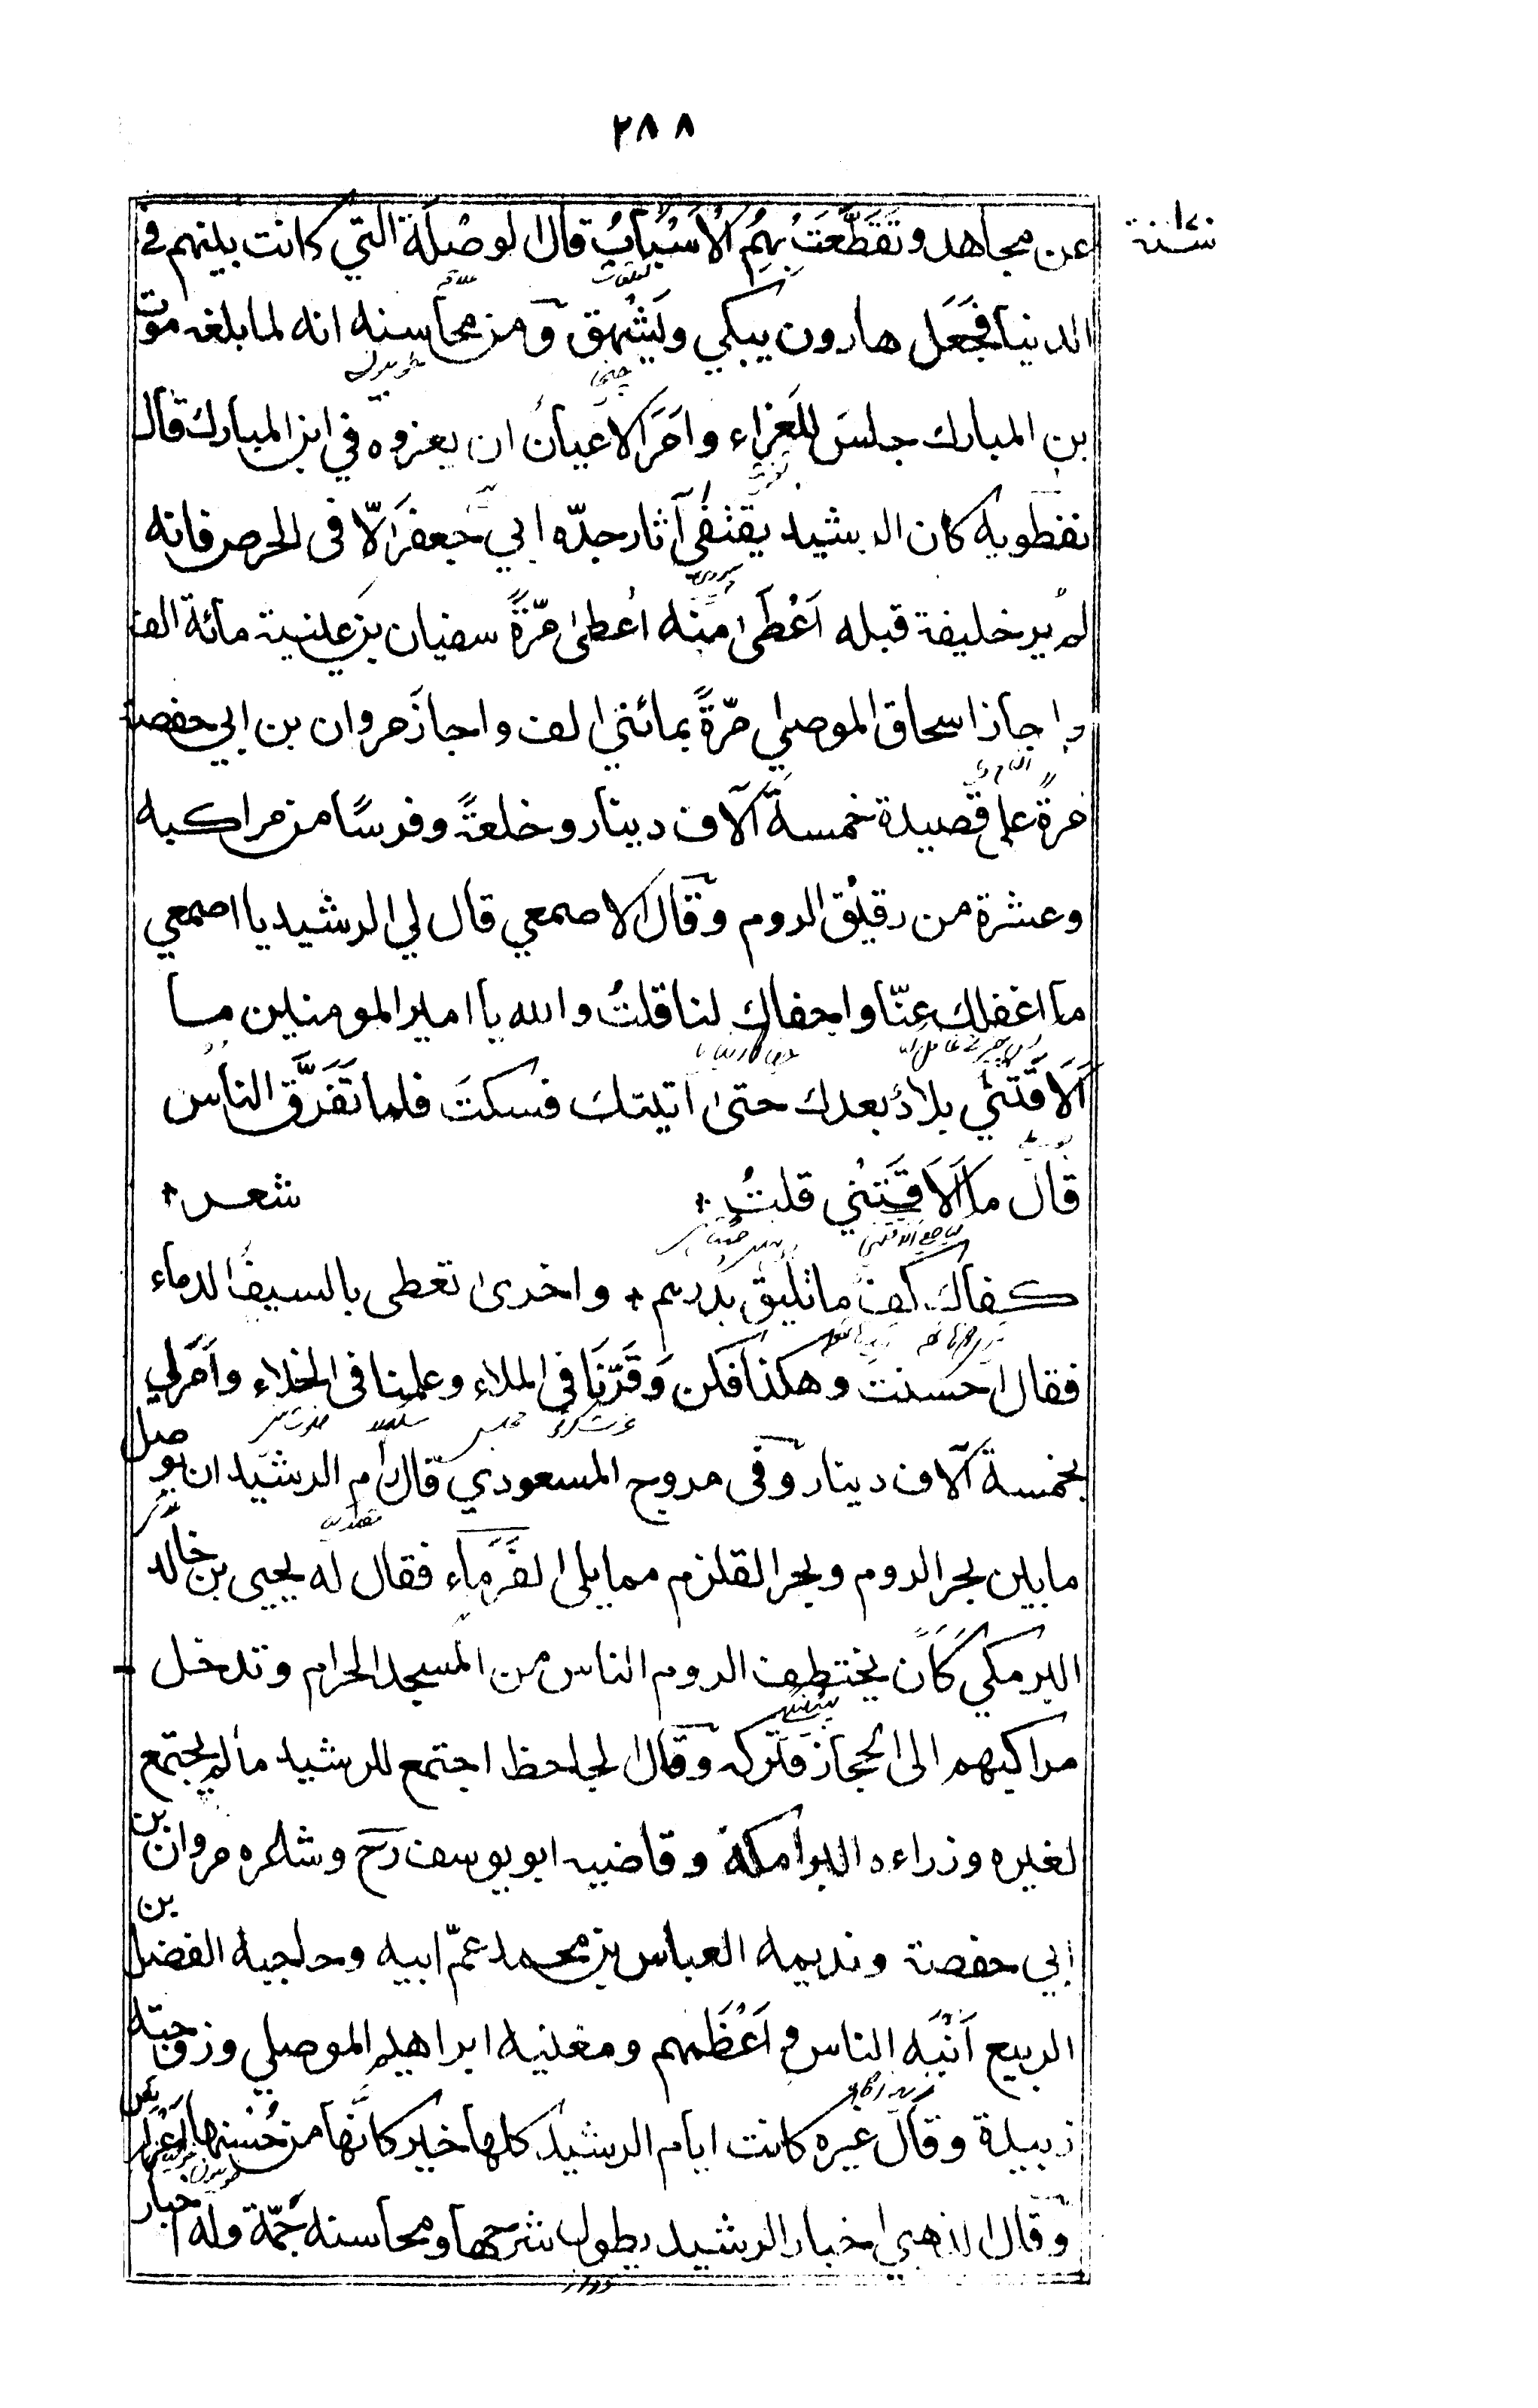 ٢٨٨
سنة ١٧٠
عن مجاهد وتَقَطَّعَتْ بِهِمُ الْاَسْبَابُ قال الوصْلَة التي كانت بينهم في
الدنيا فجَعَل هارون يبكي ويَشْهق ومن محاسنه انه لما بلغه موت
بن المبارك جلسَ للعَزاء واَمَرَ الاعيانَ ان يعزوه في ابن المبارك قال
نفطويه كان الرشيد يقتفي آثار جدّه ابي جعفرَ الّا في الحرص فانه
لم ير خليفة قبله اَعْطَى منه اعطى مرّةً سفيان بن عيينة مائة الف
واجاز اسحاق الموصلي مرّةً بمائتي الف واجازَ مروان بن ابي حفصة
مرةً على قصيدة خمسة آلاف دينار وخلعةً وفرسًا من مراكبه
وعشرة من رقيق الروم وقال الاصمعي قال لي الرشيد يا اصمعي
ما اغفلك عنّا واجفاك لنا قلتُ والله يا امير المومنين ما
اَلَاقَتْني بلادٌ بعدك حتى اتيتك فسكتَ فلما تَفَرَّق الناس
قال ما اَلَاقَتْني قلتُ شعر
كفاك كف ما تليق بدرهم واخرى تعطى بالسيف الدماء
فقال احسنت وهكذا فكن وَقّرنَا في الملاء وعلمنا في الخلاء واَمَر لي
بخمسة آلاف دينار وفي مروج المسعودي قال رام الرشيد ان يوصل
مابين بحر الروم وبحر القلزم مما يلي الفَرَمَاء فقال له يحيى بن خالد
البرمكي كان يختطف الروم الناس من المسجد الحرام وتدخل
مراكبهم الى الحجاز فتركه وقال الجاحظ اجتمع للرشيد ما لم يجتمع
لغيره وزراءه البرامكة وقاضيه ابو يوسف رح وشاعره مروان بن
ابي حفصة ونديمه العباس بن محمد عمّ ابيه وحاجبه الفضل بن
الربيع اَنْبَه الناس و اَعْظَمهم ومغنيه ابراهيم الموصلي وزوجته
زبيدة وقال غيره كانت ايام الرشيد كلها خير كانّها من حُسْنها اَعْراس
وقال الذهبي اخبار الرشيد يطول شرحها ومحاسنه جَمّة وله اخبار